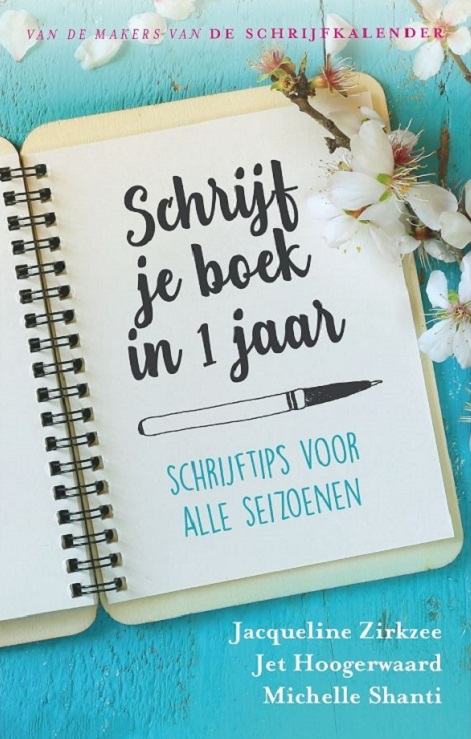 VAN DE MAKERS VAN DE SCHRIJFKALENDER
Schrijf
je boek
in 1 jaar
SCHRIJFTIPS VOOR
ALLE SEIZOENEN
Jacqueline Zirkzee
Jet Hoogerwaard
Michelle Shanti